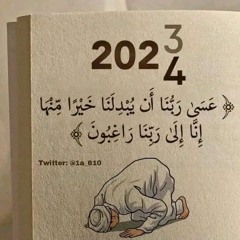 2023
4
﴿ عَسَىٰ رَبُّنَا أَن يُبْدِلَنَا خَيْرًا مِّنْهَا
إِنَّا إِلَىٰ رَبِّنَا رَاغِبُونَ ﴾
Twitter: @1a_610